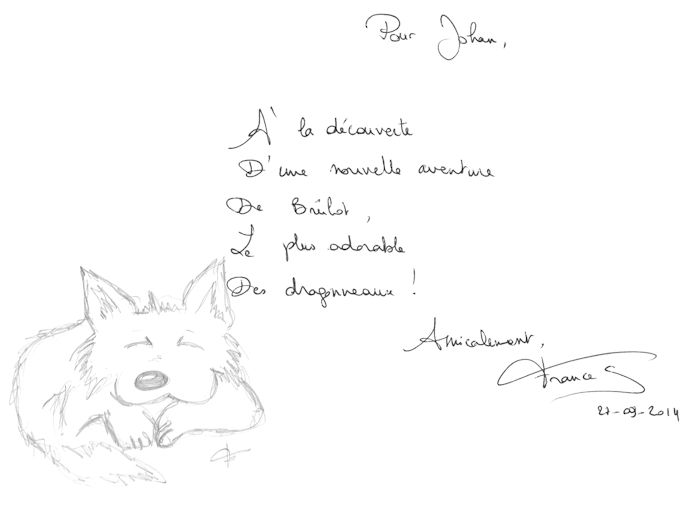 Pour Johan,
À la découverte
D'une nouvelle aventure
De Brûlot,
Le plus adorable
Des dragonneaux !
Amicalement,
France S
27-09-2014